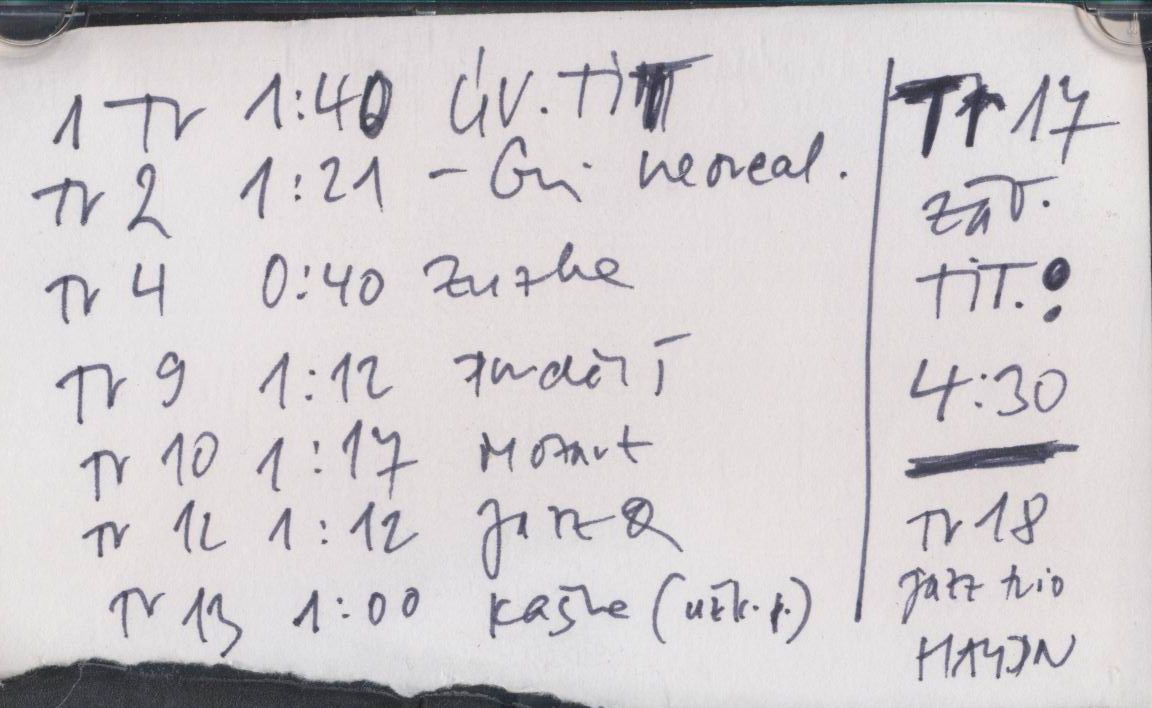 1 Tr 1:40 ÚV. TIT
Tr 2 1:21 - neoreal.
Tr 4 0:40
Tr 9 1:12
Tr 10 1:17 Mozart
Tr 12 1:12 Jazz Q
Tr 13 1:00 Kaške
Tr 17
záv.
TIT.!
4:30
Tr 18
jazz trio
HAYDN